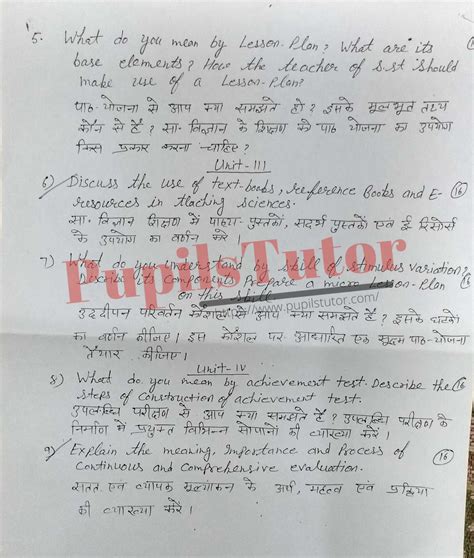 5. What do you mean by Lesson-Plan? What are its
base elements? How the teacher of s.st should
make use of a Lesson-Plan?
पाठ-योजना से आप क्या समझते हो? इसके मूलभूत तथ्य
कौन से हैं? सा. विज्ञान के शिक्षण को पाठ योजना का उपयोग
किस प्रकार करना चाहिए?
Unit-III
6) Discuss the use of text-books, reference Books and E- (16)
resources in teaching sciences.
सा. विज्ञान शिक्षण में पाठ्य-पुस्तकों, सदर्भ पुस्तकों एवं ई रिसोर्स
के उपयोग का वर्णन करें।
PupilsTutor
7) What do you understand by skill of stimulus variation?
Describe its components. Prepare a micro Lesson-Plan
on this skill.
https://www.pupilstutor.com/
उद्दीपन परिवर्तन कौशल से आप क्या समझते हैं? इसके घटकों
का वर्णन कीजिए। इस कौशल पर आधारित एक सूक्ष्म पाठ-योजना
तैयार कीजिए।
Unit-IV
8) What do you mean by achievement test. Describe the (16)
steps of construction of achievement test.
उपलब्धि परीक्षण से आप क्या समझते हैं? उपलब्धि परीक्षण के
निर्माण में प्रयुक्त विभिन्न सोपानों की व्याख्या करें।
9) Explain the meaning, Importance and Process of (16)
continuous and comprehensive evaluation.
सतत एवं व्यापक मूल्यांकन के अर्थ, महत्व एवं प्रक्रिया
की व्याख्या करें।